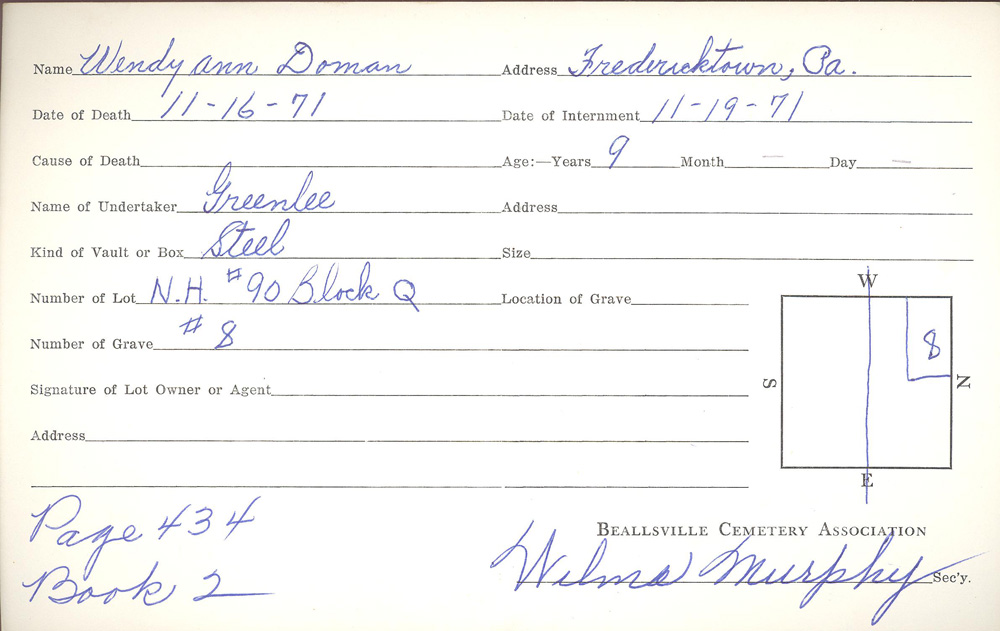 Name Wendy Ann Doman Address Fredericktown, Pa.
Date of Death 11-16-71 Date of Internment 11-19-71
Cause of Death Age:—Years 9 Month — Day —
Name of Undertaker Greenlee Address
Kind of Vault or Box Steel Size
Number of Lot N.H. #90 Block Q Location of Grave
W
Number of Grave #8
8
Signature of Lot Owner or Agent
S N
Address
E
Page 434
Book 2
BEALLSVILLE CEMETERY ASSOCIATION
Wilma Murphy Sec'y.